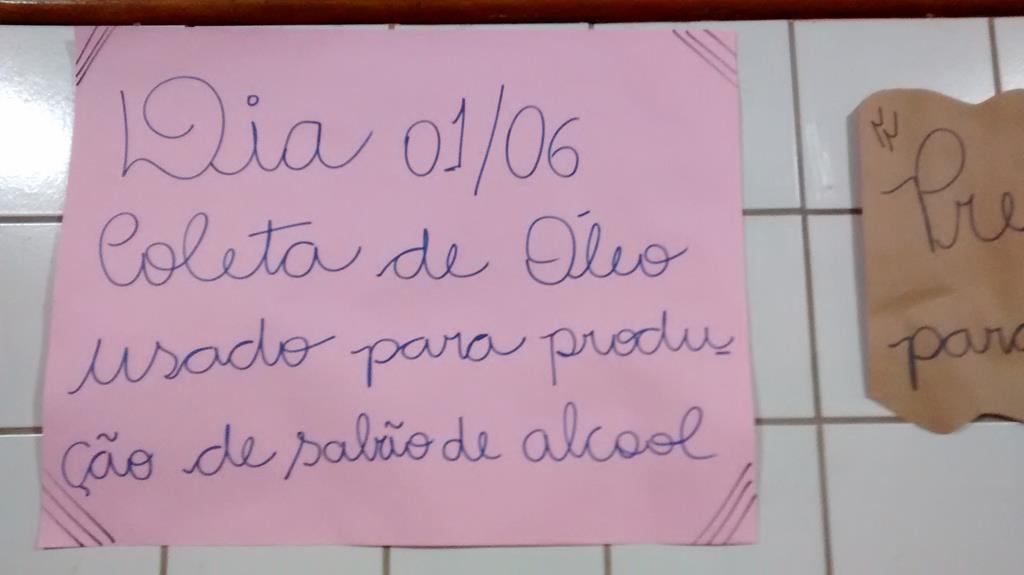 Dia 01/06
Coleta de Óleo
usado para produ-
ção de sabão de alcool
Pre
para